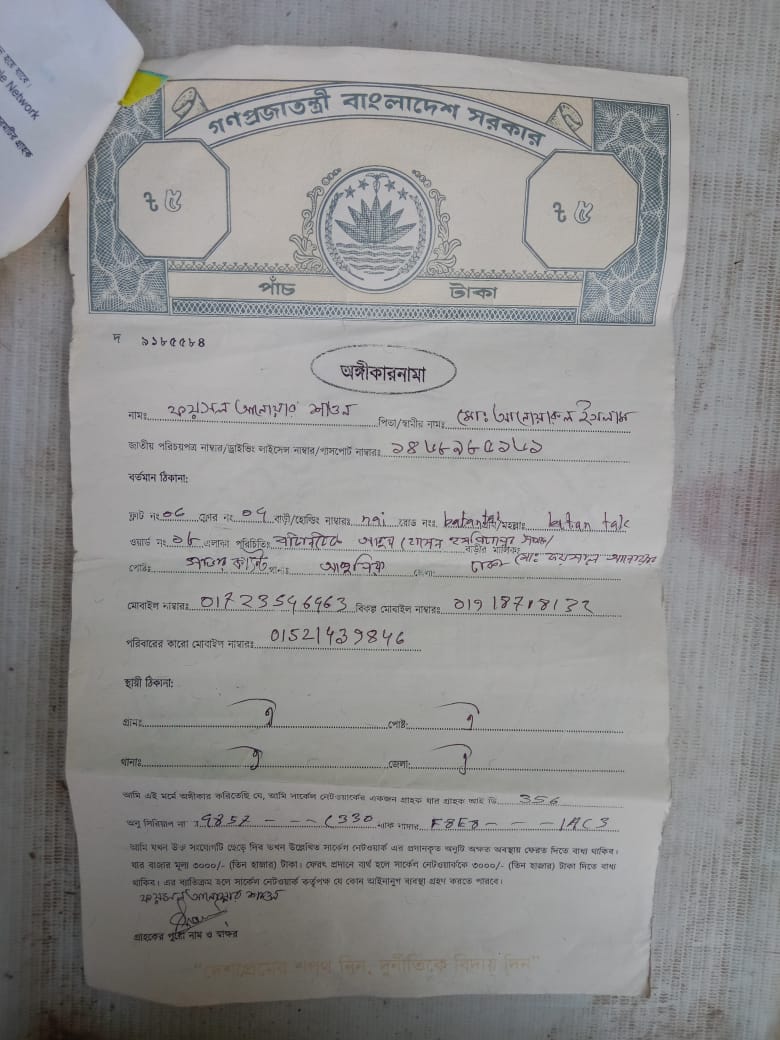 ble Network
গণপ্রজাতন্ত্রী বাংলাদেশ সরকার
৳ ৫
৳ ৫
পাঁচ টাকা
দ ৯১৮৫৫৮৪
অঙ্গীকারনামা
নামঃ ফয়সল আনোয়ার শাওন পিতা/স্বামীর নামঃ মোঃ আনোয়ারুল ইসলাম
জাতীয় পরিচয়পত্র নাম্বার/ড্রাইভিং লাইসেন্স নাম্বার/পাসপোর্ট নাম্বারঃ
বর্তমান ঠিকানা:
ফ্লাট নং ০৫ ফ্লোর নং ০৭ বাড়ী/হোল্ডিং নাম্বারঃ nai রোড নংঃ
ওয়ার্ড নং ০৮ এলাকা পরিচিতিঃ বাড়ীর মালিকঃ
পোষ্টঃ থানাঃ জেলাঃ ঢাকা
মোবাইল নাম্বারঃ 01723546963 বিকল্প মোবাইল নাম্বারঃ 01918718132
পরিবারের কারো মোবাইল নাম্বারঃ 01521439846
স্থায়ী ঠিকানা:
গ্রামঃ ঐ পোষ্ট: ঐ
থানাঃ ঐ জেলা: ঐ
আমি এই মর্মে অঙ্গীকার করিতেছি যে, আমি সার্কেল নেটওয়ার্কের একজন গ্রাহক যার গ্রাহক আই ডি 356
অনু সিরিয়াল নং 9852 - - - C330 ম্যাক নাম্বার F8E8 - - - 1AC3
আমি যখন উক্ত সংযোগটি ছেড়ে দিব তখন উল্লেখিত সার্কেল নেটওয়ার্ক এর প্রদানকৃত অনুটি অক্ষত অবস্থায় ফেরত দিতে বাধ্য থাকিব।
যার বাজার মূল্য ৩০০০/- (তিন হাজার) টাকা। ফেরৎ প্রদানে ব্যর্থ হলে সার্কেল নেটওয়ার্ককে ৩০০০/- (তিন হাজার) টাকা দিতে বাধ্য
থাকিব। এর ব্যতিক্রম হলে সার্কেল নেটওয়ার্ক কর্তৃপক্ষ যে কোন আইনানুগ ব্যবস্থা গ্রহণ করতে পারবে।
ফয়সল আনোয়ার শাওন
গ্রাহকের পুরো নাম ও স্বাক্ষর
"দেশপ্রেমের শপথ নিন, দুর্নীতিকে বিদায় দিন"